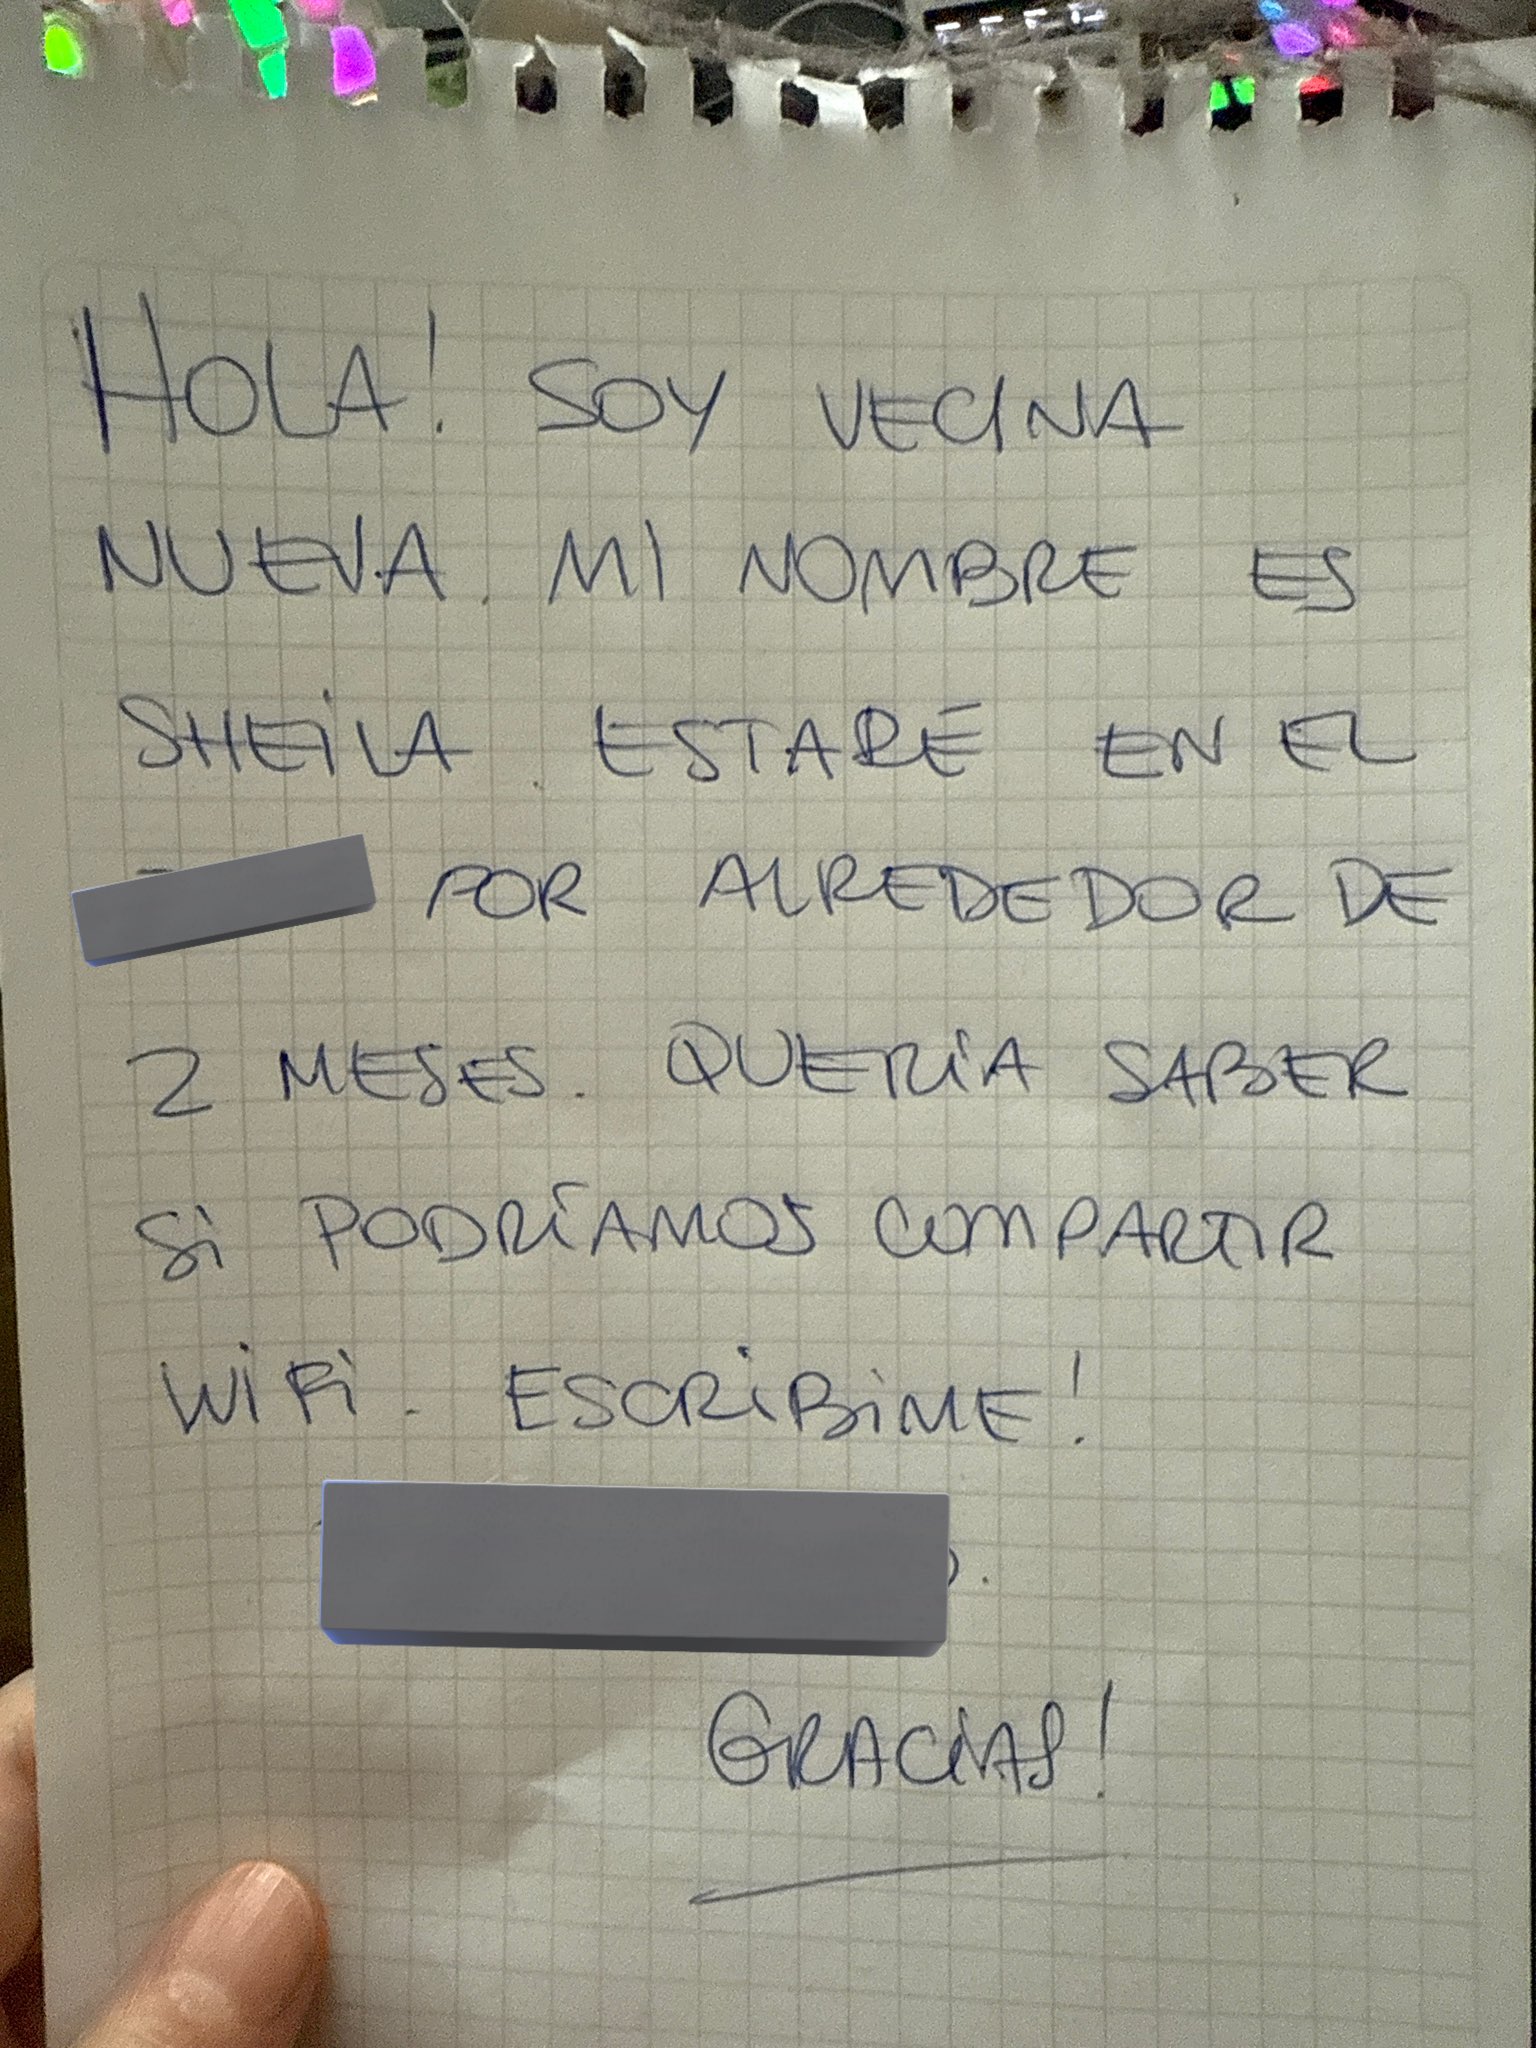 HOLA! SOY VECINA
NUEVA. MI NOMBRE ES
SHEILA. ESTARÉ EN EL
POR ALREDEDOR DE
2 MESES. QUERÍA SABER
SI PODRÍAMOS COMPARTIR
WIFI. ESCRIBIME!
GRACIAS!